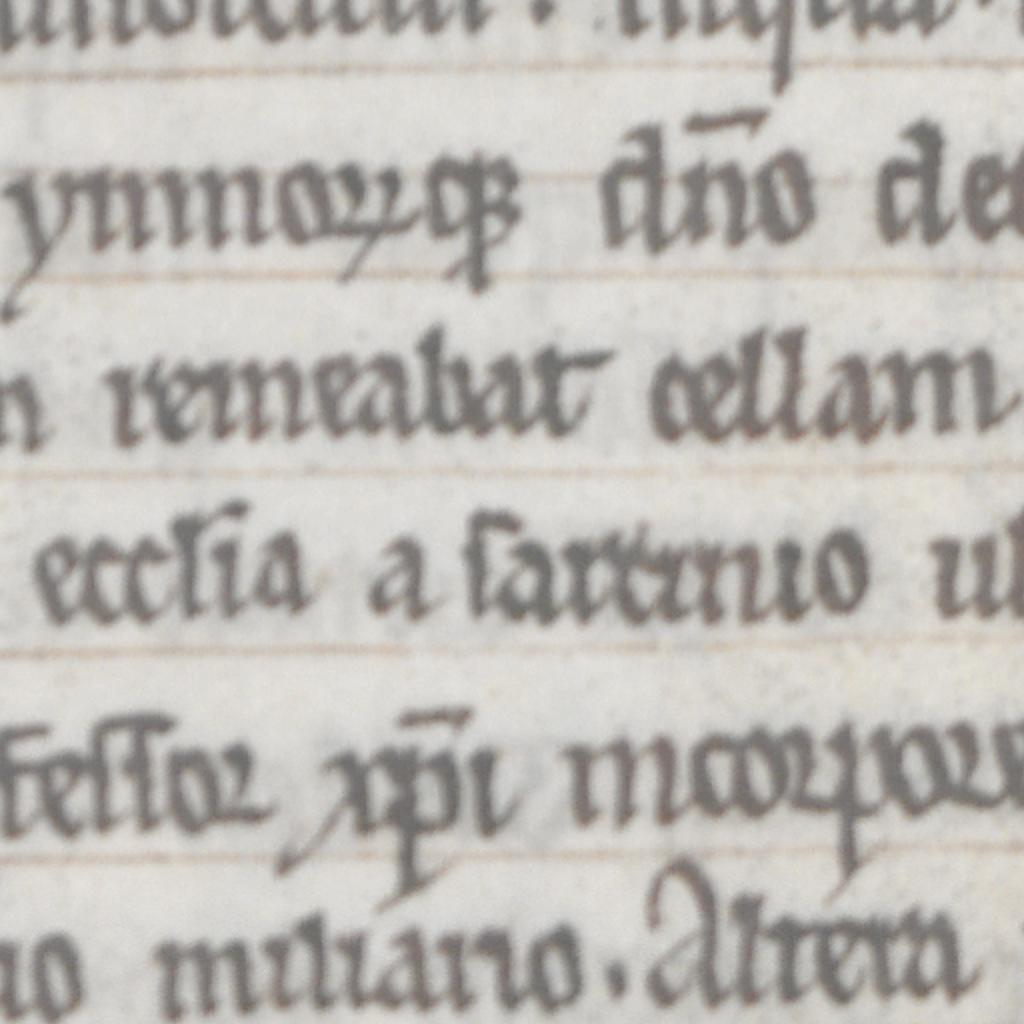 ymnorꝝqꝫ dn̄o de
remeabat cellam
eccl̄ia a sartinuo ul
fessor xp̄i incorpore
miliario. Altera